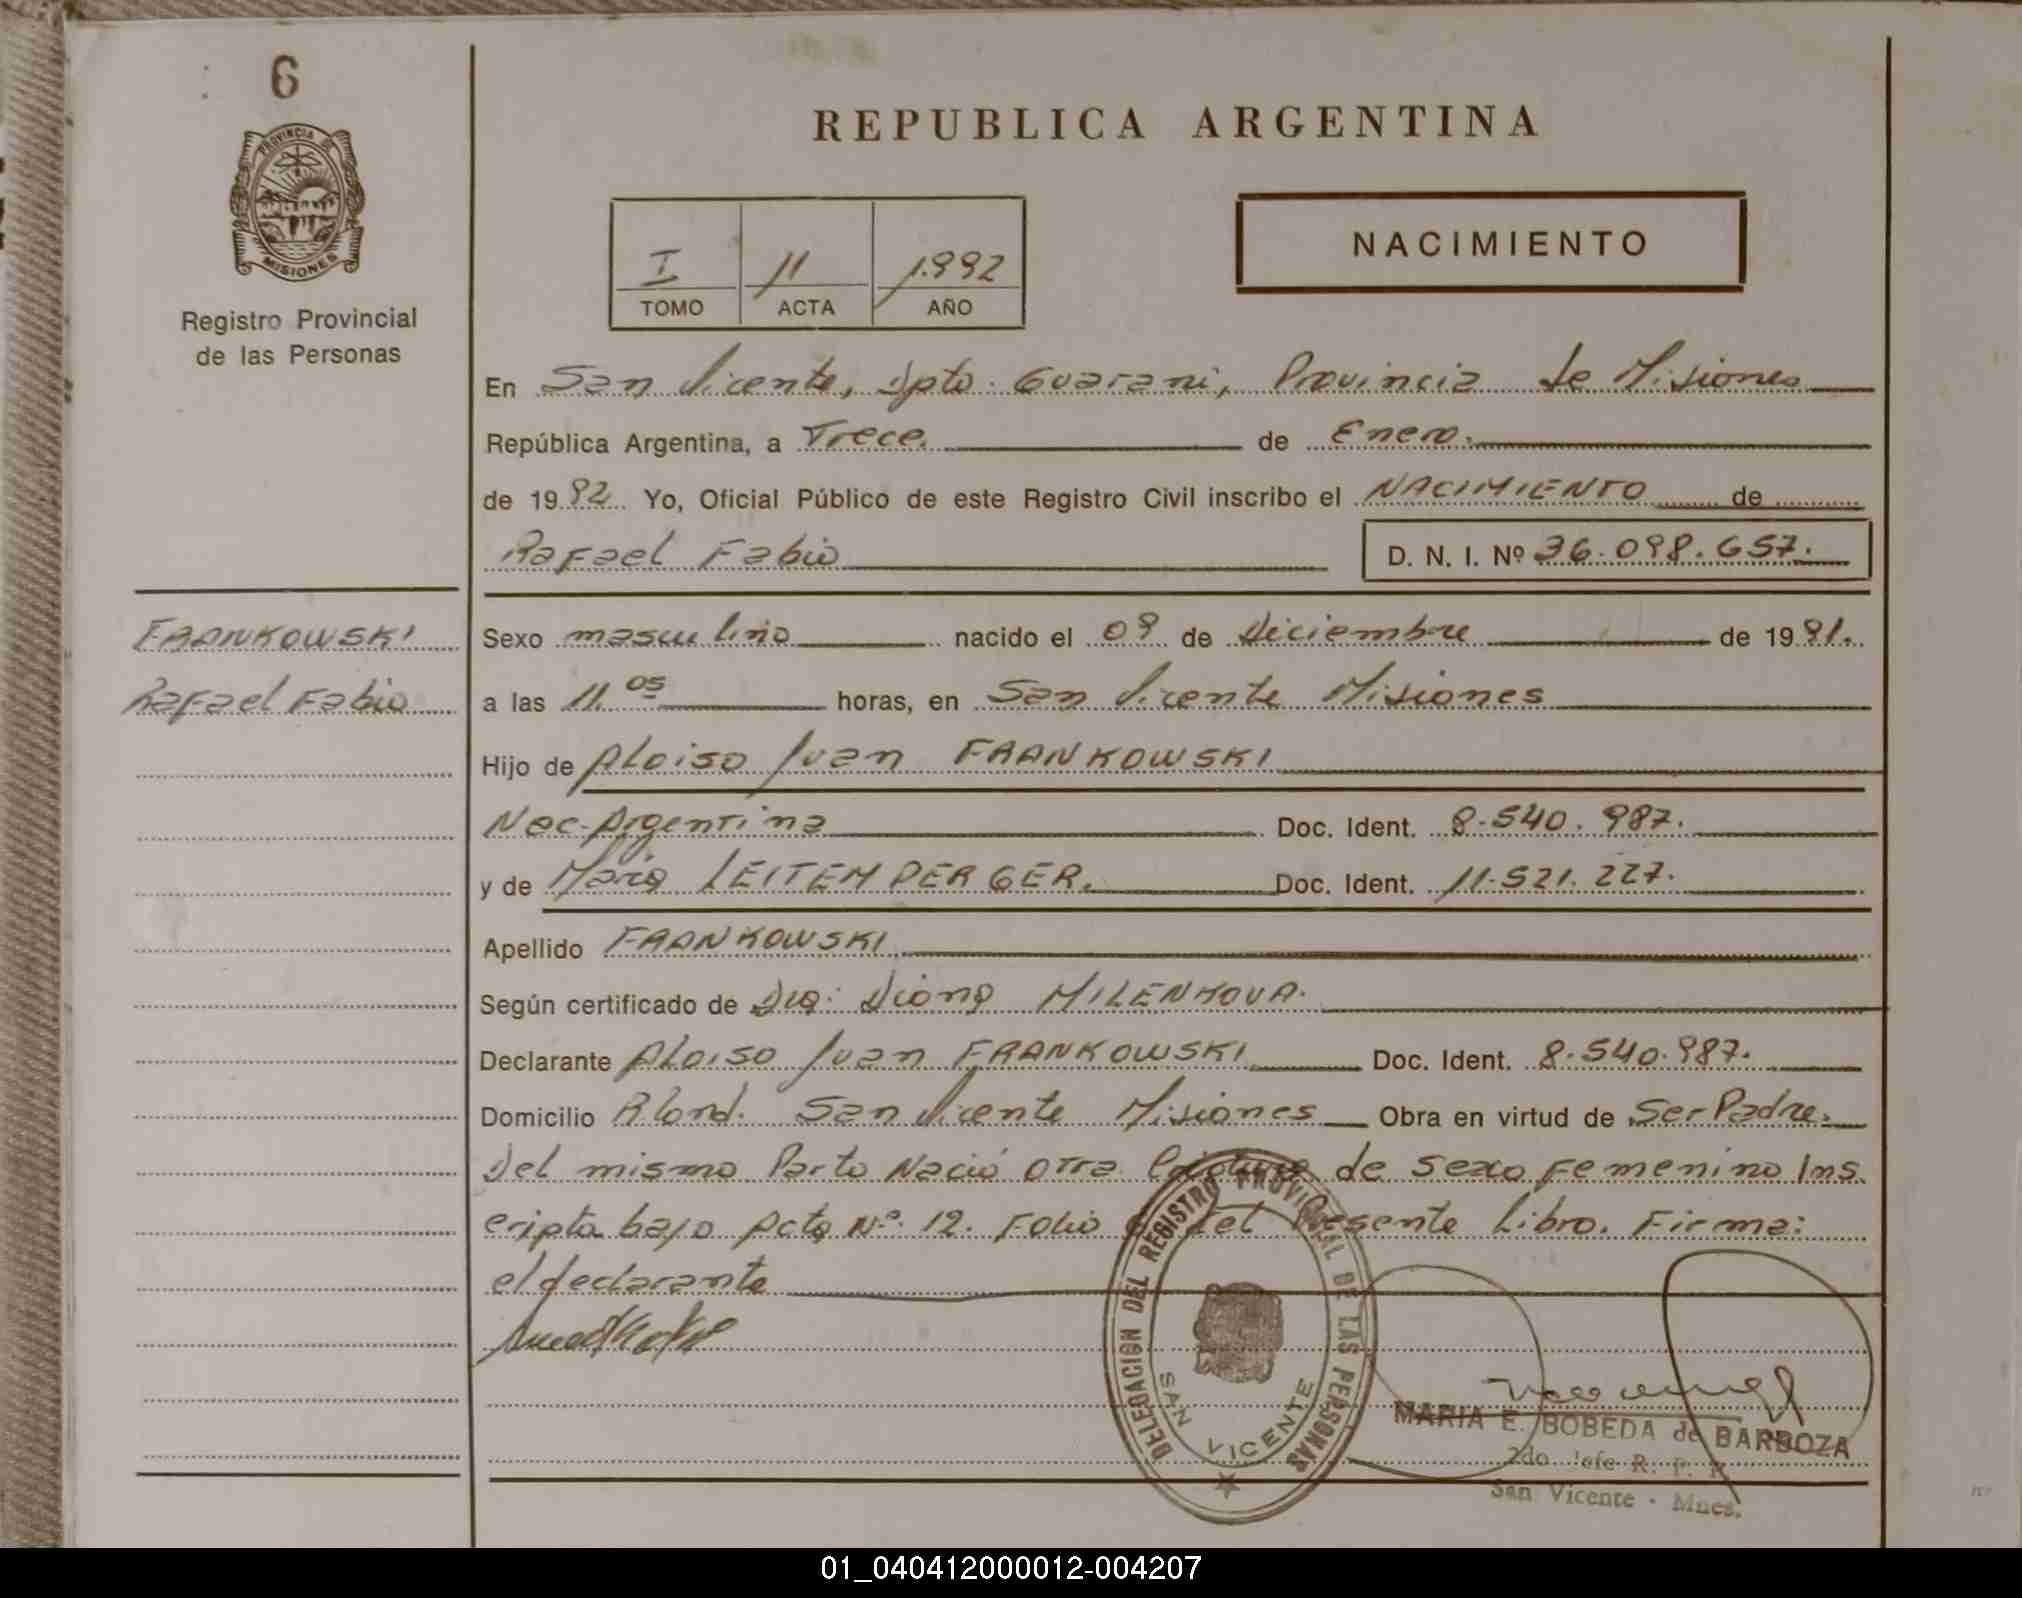 6
REPUBLICA ARGENTINA
PROVINCIA DE
MISIONES
Registro Provincial
de las Personas
I 11 1.992
TOMO ACTA AÑO
NACIMIENTO
En San Vicente, Dpto. Guarani, Provincia de Misiones
República Argentina, a Trece. de Enero.
de 1992. Yo, Oficial Público de este Registro Civil inscribo el NACIMIENTO de
Rafael Fabio D. N. I. Nº 36.098.657.
FRANKOWSKI
Rafael Fabio
Sexo masculino nacido el 09 de Diciembre de 1991.
a las 11.05 horas, en San Vicente Misiones
Hijo de Aloiso Juan FRANKOWSKI
Nac. Argentina Doc. Ident. 8.540.987.
y de Maria LEITEMPERGER. Doc. Ident. 11.521.227.
Apellido FRANKOWSKI
Según certificado de Dra: Diana MILENKOVA.
Declarante Aloiso Juan FRANKOWSKI Doc. Ident. 8.540.987.
Domicilio San Vicente Misiones Obra en virtud de Ser Padre.
Del mismo Parto Nació otra Criatura de sexo Femenino Ins
cripta bajo Acta Nº. 12. Folio del Presente Libro. Firma:
el declarante
DELEGACION DEL REGISTRO PROVINCIAL DE LAS PERSONAS
SAN VICENTE
MARIA E. BOBEDA de BARBOZA
2do Jefe R. P. P.
San Vicente - Mnes.
01_040412000012-004207